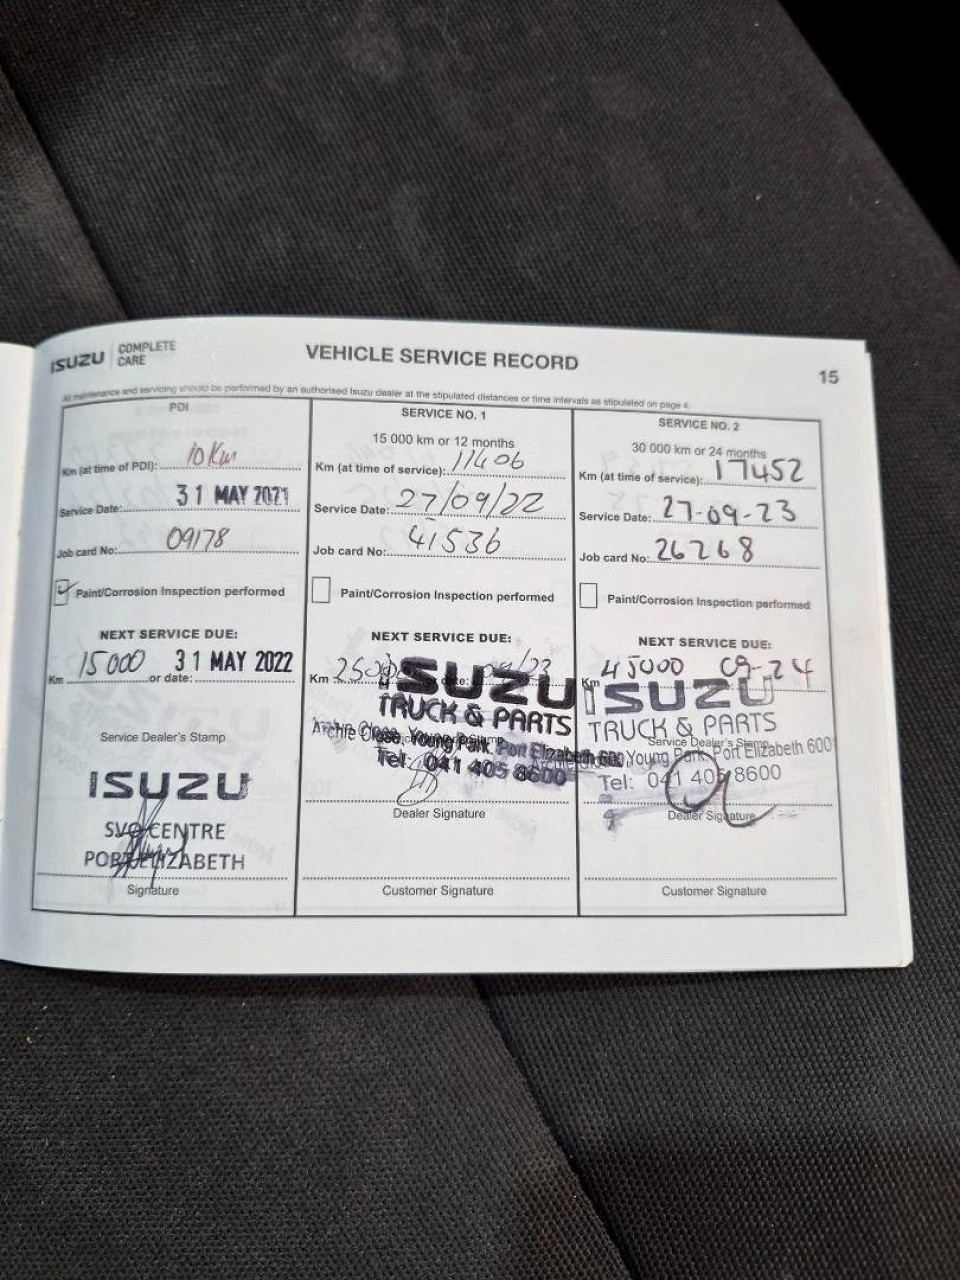 ISUZU COMPLETE CARE
VEHICLE SERVICE RECORD
15
All maintenance and servicing should be performed by an authorised Isuzu dealer at the stipulated distances or time intervals as stipulated on page 4.
PDI
Km (at time of PDI): 10 Km
Service Date: 31 MAY 2021
Job card No: 09178
Paint/Corrosion Inspection performed
NEXT SERVICE DUE:
Km 15000 or date: 31 MAY 2022
Service Dealer's Stamp
ISUZU
SVC CENTRE
PORT ELIZABETH
Signature
SERVICE NO. 1
15 000 km or 12 months
Km (at time of service): 11406
Service Date: 27/09/22
Job card No: 41536
Paint/Corrosion Inspection performed
NEXT SERVICE DUE:
Km date: 09/23
ISUZU
TRUCK & PARTS
Archie Close, Young Park, Port Elizabeth
Tel: 041 405 8600
Dealer Signature
Customer Signature
SERVICE NO. 2
30 000 km or 24 months
Km (at time of service): 17452
Service Date: 27-09-23
Job card No: 26268
Paint/Corrosion Inspection performed
NEXT SERVICE DUE:
Km 45000 09-24
ISUZU
TRUCK & PARTS
Service Dealer's Stamp
Young Park, Port Elizabeth 600
Tel: 041 405 8600
Dealer Signature
Customer Signature